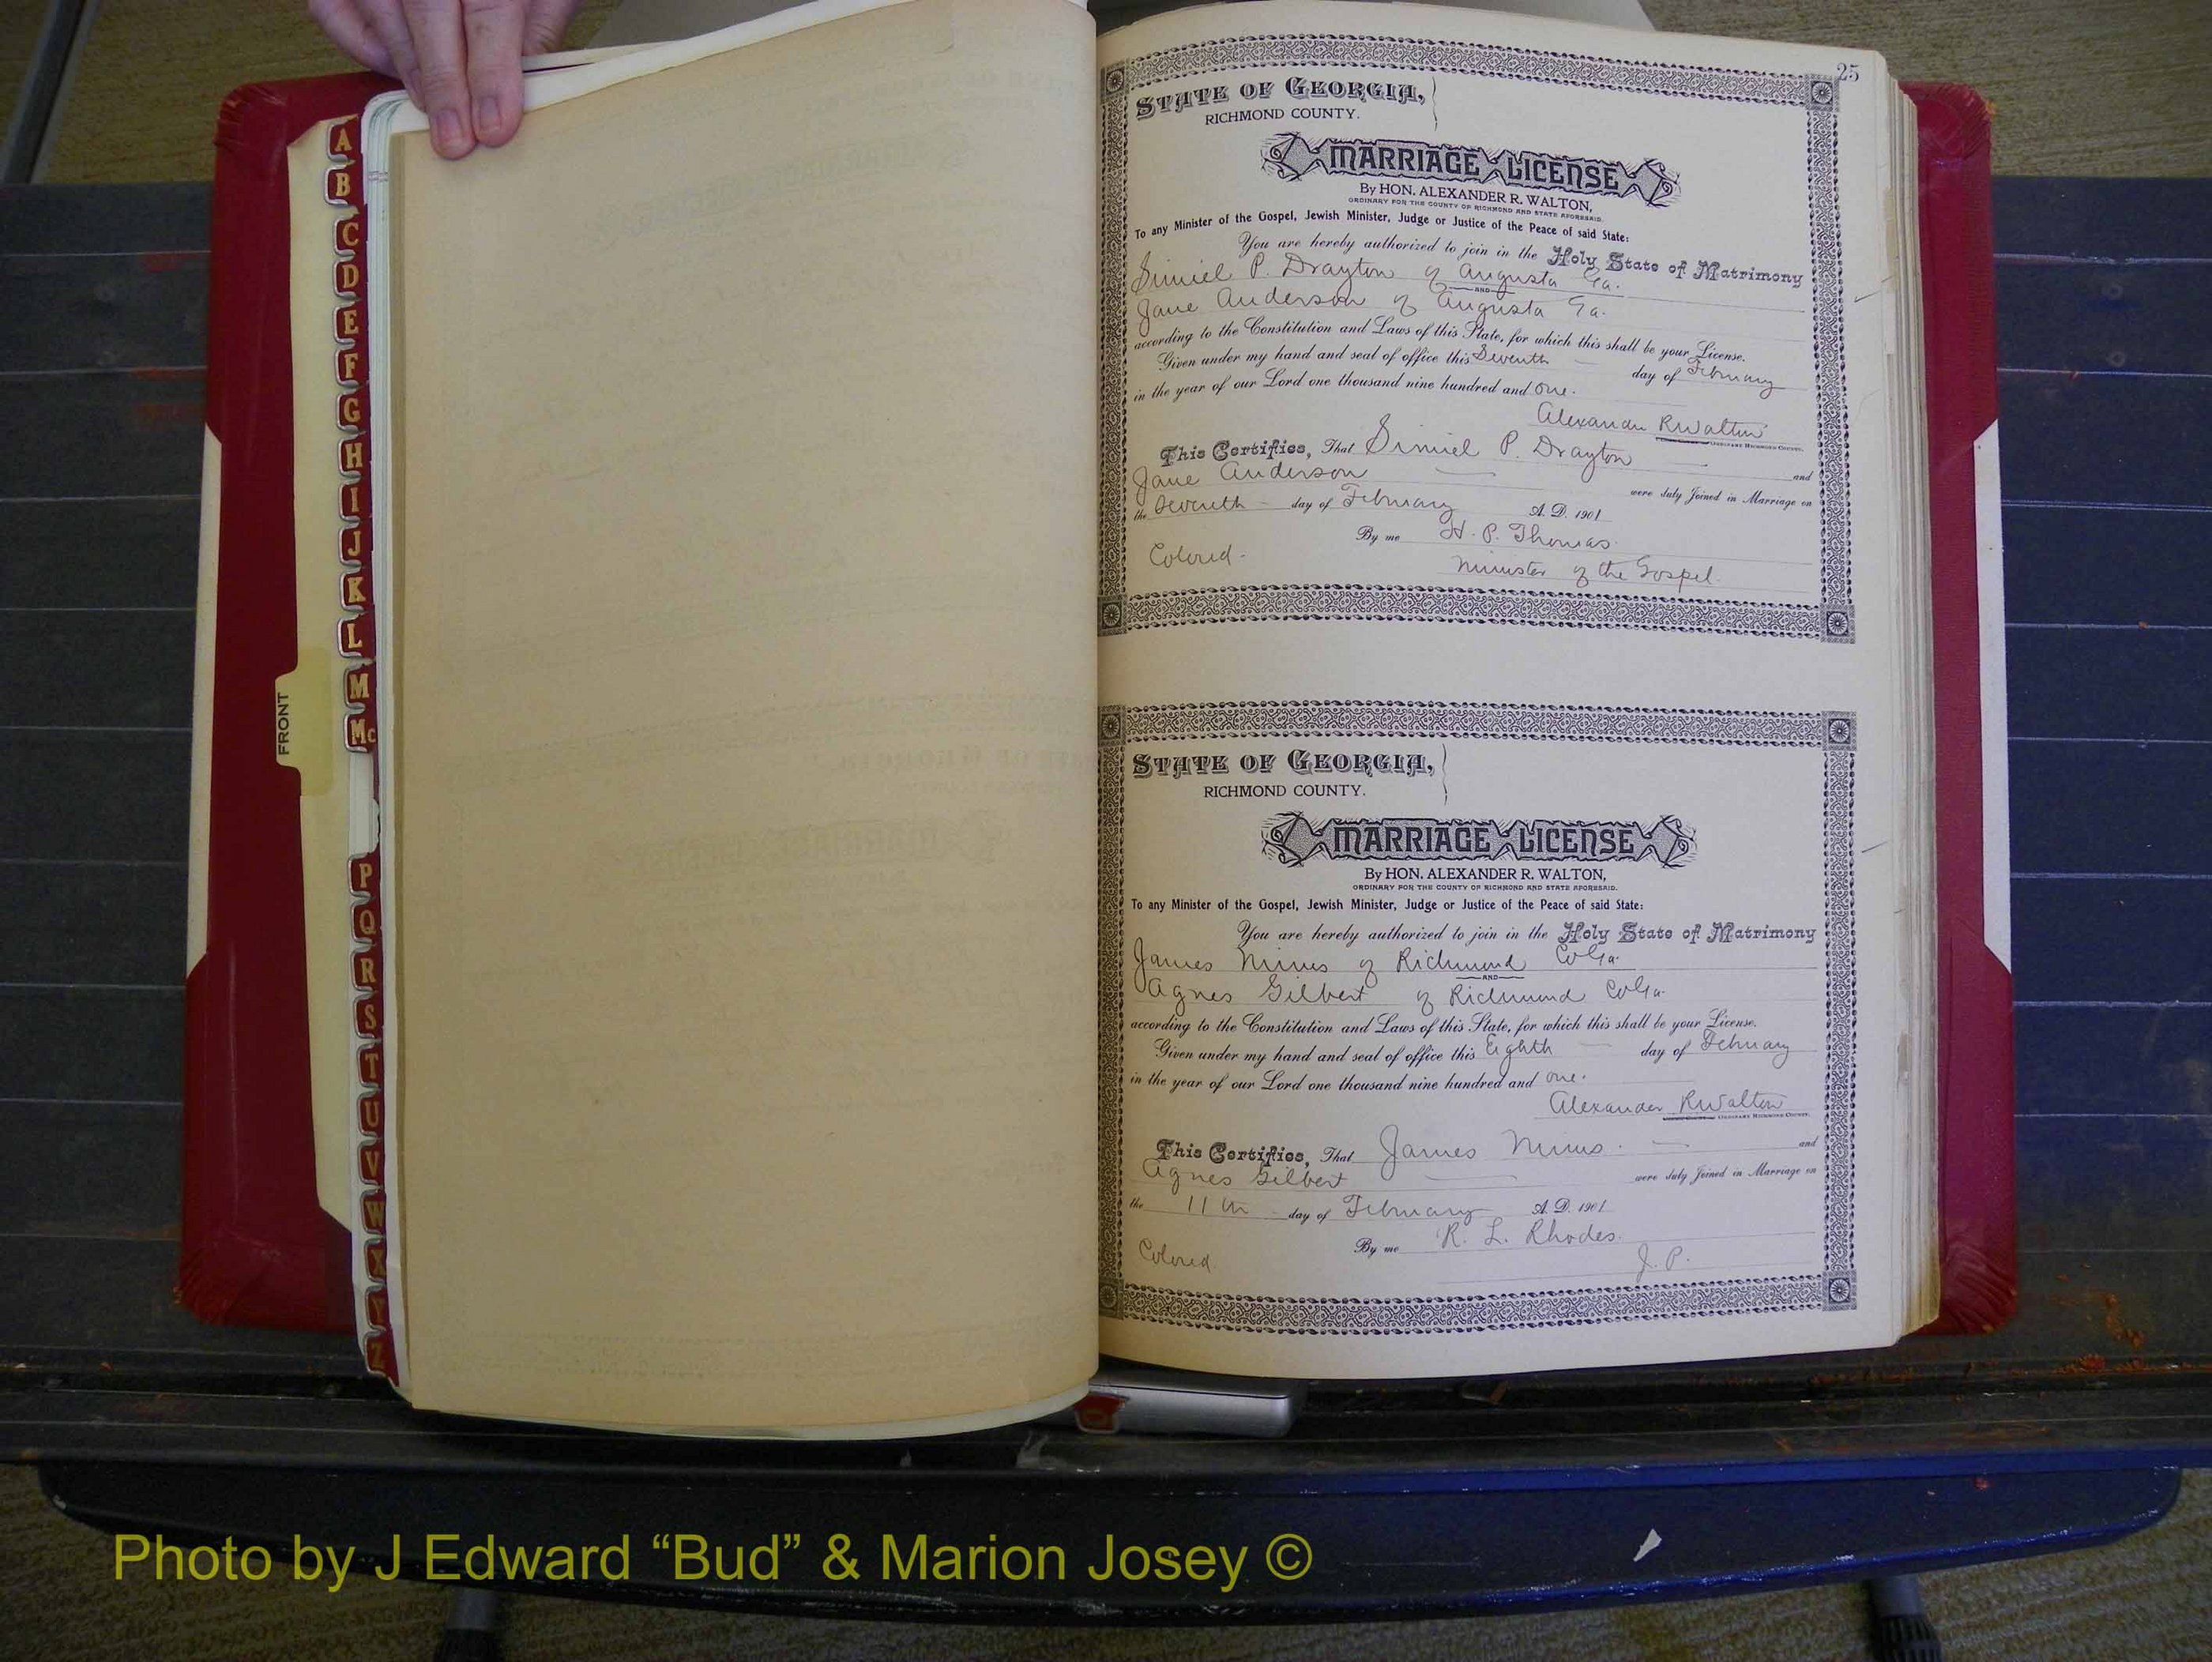 A
B
C
D
E
F
G
H
I
J
K
L
M
Mc
P
Q
R
S
T
U
V
W
X
Y
Z
FRONT
25
STATE OF GEORGIA,
RICHMOND COUNTY.
MARRIAGE LICENSE
By HON. ALEXANDER R. WALTON,
ORDINARY FOR THE COUNTY OF RICHMOND AND STATE AFORESAID.
To any Minister of the Gospel, Jewish Minister, Judge or Justice of the Peace of said State:
You are hereby authorized to join in the Holy State of Matrimony
Simiel P. Drayton of Augusta Ga.
AND
Jane Anderson of Augusta Ga.
according to the Constitution and Laws of this State, for which this shall be your License.
Given under my hand and seal of office this Seventh day of February
in the year of our Lord one thousand nine hundred and One.
Alexander R Walton
ORDINARY RICHMOND COUNTY.
This Certifies, That Simiel P. Drayton and
Jane Anderson were duly Joined in Marriage on
the Seventh day of February A. D. 1901
By me H. P. Thomas.
Colored - Minister of the Gospel.
STATE OF GEORGIA,
RICHMOND COUNTY.
MARRIAGE LICENSE
By HON. ALEXANDER R. WALTON,
ORDINARY FOR THE COUNTY OF RICHMOND AND STATE AFORESAID.
To any Minister of the Gospel, Jewish Minister, Judge or Justice of the Peace of said State:
You are hereby authorized to join in the Holy State of Matrimony
James Mims of Richmond Co Ga.
AND
Agnes Gilbert of Richmond Co Ga
according to the Constitution and Laws of this State, for which this shall be your License.
Given under my hand and seal of office this Eighth day of February
in the year of our Lord one thousand nine hundred and one.
Alexander R Walton
ORDINARY RICHMOND COUNTY.
This Certifies, That James Mims. and
Agnes Gilbert were duly Joined in Marriage on
the 11th day of February A. D. 1901
By me R. L. Rhodes.
Colored J. P.
Photo by J Edward “Bud” & Marion Josey ©